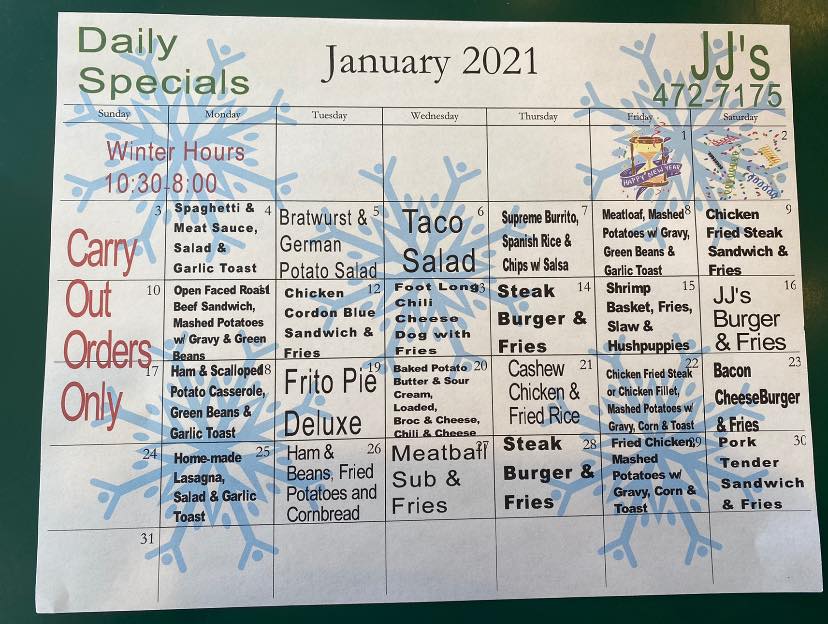 Daily
Specials
January 2021
JJ's
472-7175
Sunday Monday Tuesday Wednesday Thursday Friday Saturday
Winter Hours
10:30-8:00
1
HAPPY NEW YEAR
2
3
Carry
Out
Orders
Only
4
Spaghetti &
Meat Sauce,
Salad &
Garlic Toast
5
Bratwurst &
German
Potato Salad
6
Taco
Salad
7
Supreme Burrito,
Spanish Rice &
Chips w/ Salsa
8
Meatloaf, Mashed
Potatoes w/ Gravy,
Green Beans &
Garlic Toast
9
Chicken
Fried Steak
Sandwich &
Fries
10
Open Faced Roast
Beef Sandwich,
Mashed Potatoes
w/ Gravy & Green
Beans
12
Chicken
Cordon Blue
Sandwich &
Fries
13
Foot Long
Chili
Cheese
Dog with
Fries
14
Steak
Burger &
Fries
15
Shrimp
Basket, Fries,
Slaw &
Hushpuppies
16
JJ's
Burger
& Fries
17
18
Ham & Scalloped
Potato Casserole,
Green Beans &
Garlic Toast
19
Frito Pie
Deluxe
20
Baked Potato
Butter & Sour
Cream,
Loaded,
Broc & Cheese,
Chili & Cheese
21
Cashew
Chicken &
Fried Rice
22
Chicken Fried Steak
or Chicken Fillet,
Mashed Potatoes w/
Gravy, Corn & Toast
23
Bacon
CheeseBurger
& Fries
24
25
Home-made
Lasagna,
Salad & Garlic
Toast
26
Ham &
Beans, Fried
Potatoes and
Cornbread
27
Meatball
Sub &
Fries
28
Steak
Burger &
Fries
29
Fried Chicken,
Mashed
Potatoes w/
Gravy, Corn &
Toast
30
Pork
Tender
Sandwich
& Fries
31